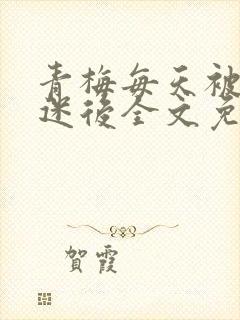 青梅每天被
迷後全文免
賀霞